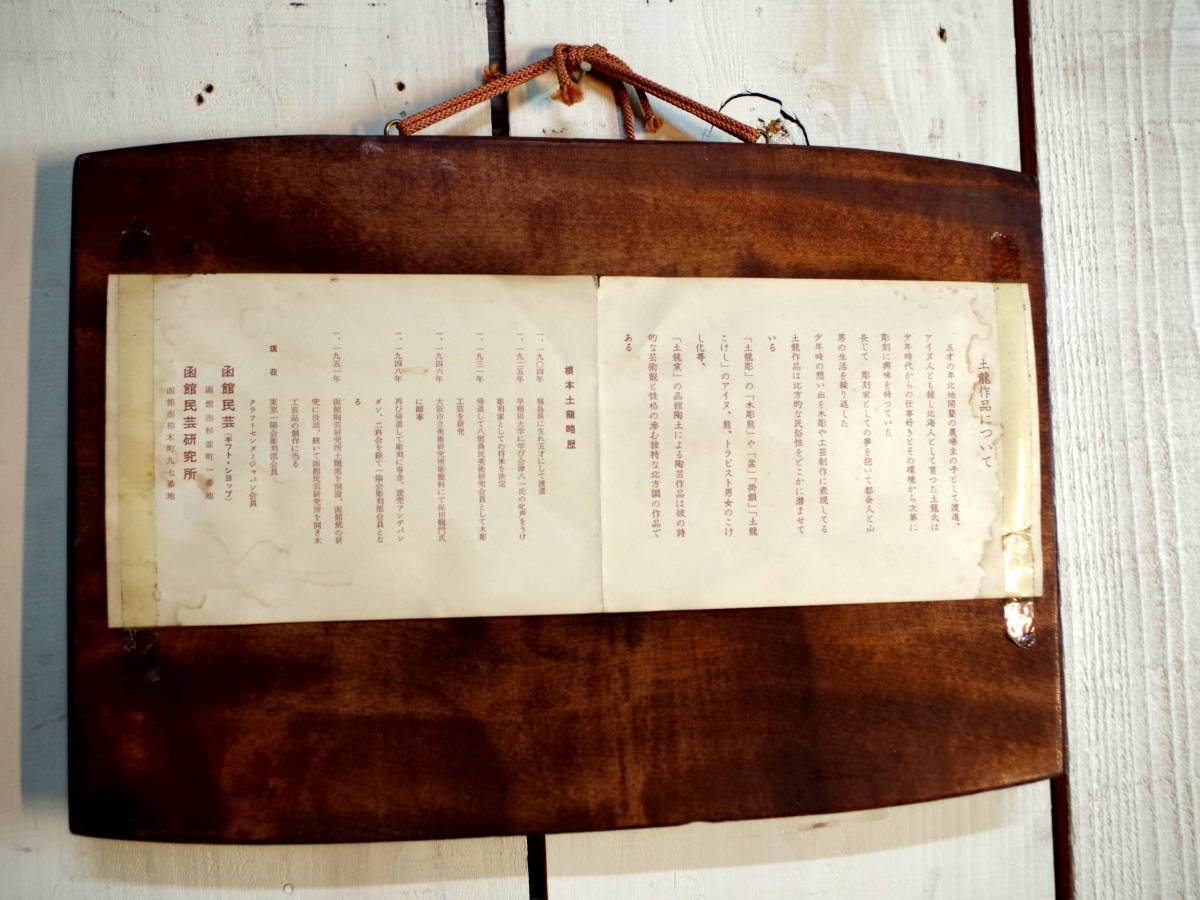 土龍作品について
五才の年比地開墾の農場主の子として渡道、
アイヌ人とも接し北海人として育つた土龍氏は
少年時代からの仕事好きとその環境から次第に
彫刻に興味を持つていた
長じて 彫刻家としての夢を抱いて都会人と山
男の生活を繰り返した
少年時の想い出を木彫や工芸制作に表現してる
土龍作品は北方的な民俗性をどこかに潜ませて
いる
「土龍彫」の「木彫熊」や「盆」「掛額」「土龍
こけし」のアイヌ、熊、トラピスト男女のこけ
し化等、
「土龍窯」の函館陶土による陶芸作品は彼の詩
的な芸術観と性格の滲む独特な北方調の作品で
ある
根本土龍略歴
一、一九〇四年 福島県に生れ五才にして渡道
一、一九二五年 早稲田大学に学び会津八一氏の叱声をうけ
彫刻家としての将来を決定
一、一九三一年 帰道して八雲農民美術研究会員として木彫
工芸を研究
一、一九四六年 大阪市立美術研究所彫塑科にて保田龍門氏
に師事
一、一九四八年 再び帰道して彫刻に専念、読売アンデパン
ダン、二科会を経て一陽会彫刻部会員とな
る
一、一九五一年 函館陶芸研究所土龍窯を開設、函館焼の研
究に没頭、続いて函館民芸研究所を開き木
工芸品の製作に当る
現在 東京一陽会彫刻部会員
クラフトセンタージャパン会員
函館民芸(ギフト・シヨップ)
函館市杉並町一番地
函館民芸研究所
函館市柏木町九七番地